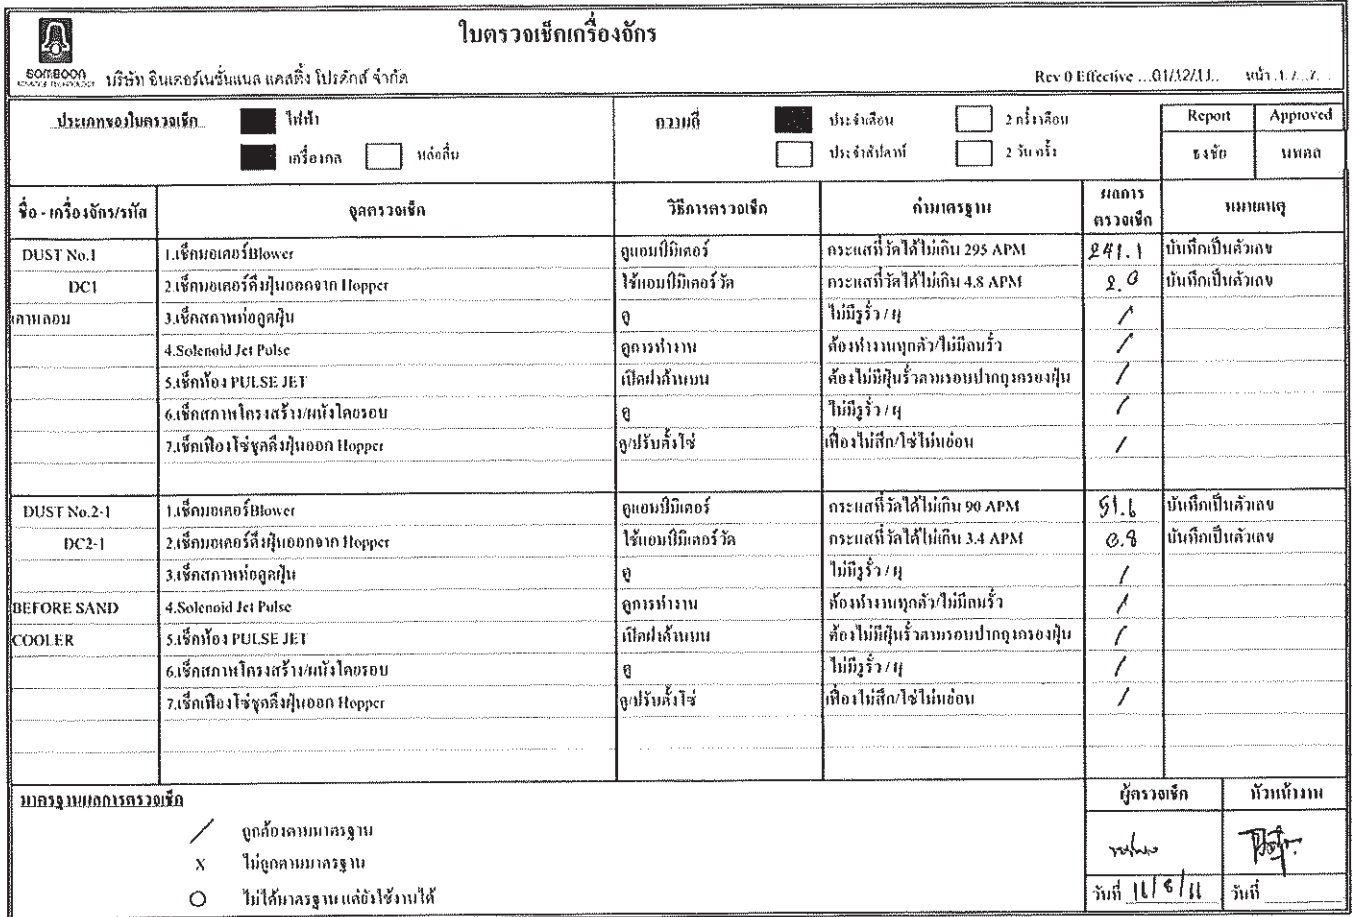 ใบตรวจเช็คเครื่องจักร
SOMBOON
ADVANCE TECHNOLOGY
บริษัท อินเตอร์เนชั่นแนล แคสติ้ง โปรดักส์ จำกัด
Rev 0 Effective ...01/12/11.. หน้า .1./...7...
ประเภทของใบตรวจเช็ค ไฟฟ้า
เครื่องกล หล่อลื่น
ความถี่ ประจำเดือน 2 ครั้ง/เดือน
ประจำสัปดาห์ 2 วัน/ครั้ง
Report Approved
ธงชัย นพดล
ชื่อ - เครื่องจักร/รหัส จุดตรวจเช็ค วิธีการตรวจเช็ค ค่ามาตรฐาน ผลการตรวจเช็ค หมายเหตุ
DUST No.1 1.เช็คมอเตอร์Blower ดูแอมป์มิเตอร์ กระแสที่วัดได้ไม่เกิน 295 APM 241.1 บันทึกเป็นตัวเลข
DC1 2.เช็คมอเตอร์ดึงฝุ่นออกจาก Hopper ใช้แอมป์มิเตอร์วัด กระแสที่วัดได้ไม่เกิน 4.8 APM 2.0 บันทึกเป็นตัวเลข
เตาหลอม 3.เช็คสภาพท่อดูดฝุ่น ดู ไม่มีรูรั่ว / ผุ /
4.Solenoid Jet Pulse ดูการทำงาน ต้องทำงานทุกตัว/ไม่มีลมรั่ว /
5.เช็คห้อง PULSE JET เปิดฝาด้านบน ต้องไม่มีฝุ่นรั่วตามรอบปากถุงกรองฝุ่น /
6.เช็คสภาพโครงสร้าง/ผนังโดยรอบ ดู ไม่มีรูรั่ว / ผุ /
7.เช็คเฟืองโซ่ชุดดึงฝุ่นออก Hopper ดู/ปรับตั้งโซ่ เฟืองไม่สึก/โซ่ไม่หย่อน /
DUST No.2-1 1.เช็คมอเตอร์Blower ดูแอมป์มิเตอร์ กระแสที่วัดได้ไม่เกิน 90 APM 51.6 บันทึกเป็นตัวเลข
DC2-1 2.เช็คมอเตอร์ดึงฝุ่นออกจาก Hopper ใช้แอมป์มิเตอร์วัด กระแสที่วัดได้ไม่เกิน 3.4 APM 0.8 บันทึกเป็นตัวเลข
3.เช็คสภาพท่อดูดฝุ่น ดู ไม่มีรูรั่ว / ผุ /
BEFORE SAND 4.Solenoid Jet Pulse ดูการทำงาน ต้องทำงานทุกตัว/ไม่มีลมรั่ว /
COOLER 5.เช็คห้อง PULSE JET เปิดฝาด้านบน ต้องไม่มีฝุ่นรั่วตามรอบปากถุงกรองฝุ่น /
6.เช็คสภาพโครงสร้าง/ผนังโดยรอบ ดู ไม่มีรูรั่ว / ผุ /
7.เช็คเฟืองโซ่ชุดดึงฝุ่นออก Hopper ดู/ปรับตั้งโซ่ เฟืองไม่สึก/โซ่ไม่หย่อน /
มาตรฐานผลการตรวจเช็ค ผู้ตรวจเช็ค หัวหน้างาน
/ ถูกต้องตามมาตรฐาน
X ไม่ถูกตามมาตรฐาน
O ไม่ได้มาตรฐาน แต่ยังใช้งานได้
วันที่ 16/8/11 วันที่